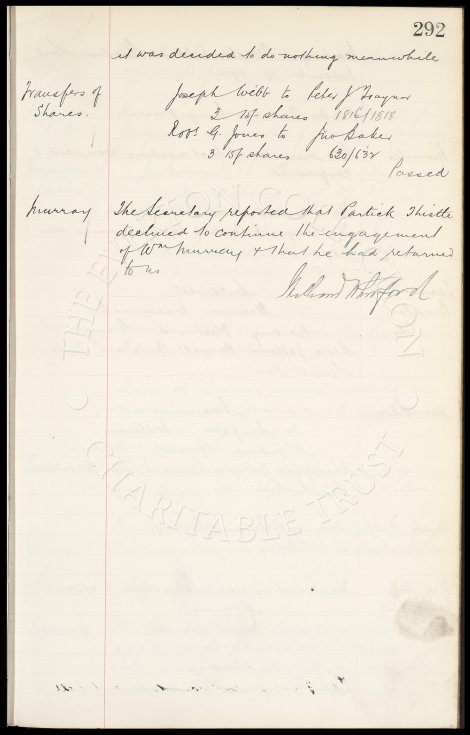 292
it was decided to do nothing meanwhile
Transfers of Shares.
Joseph Webb to Peter J Traynor
2 15/- shares 1816/1818
Robt G. Jones to Jno Baker
3 15/- shares 630/632
Passed
Murray
The Secretary reported that Partick Thistle
declined to continue the engagement
of Wm Murray & that he had returned
to us
THE EVERTON CO
CHARITABLE TRUST